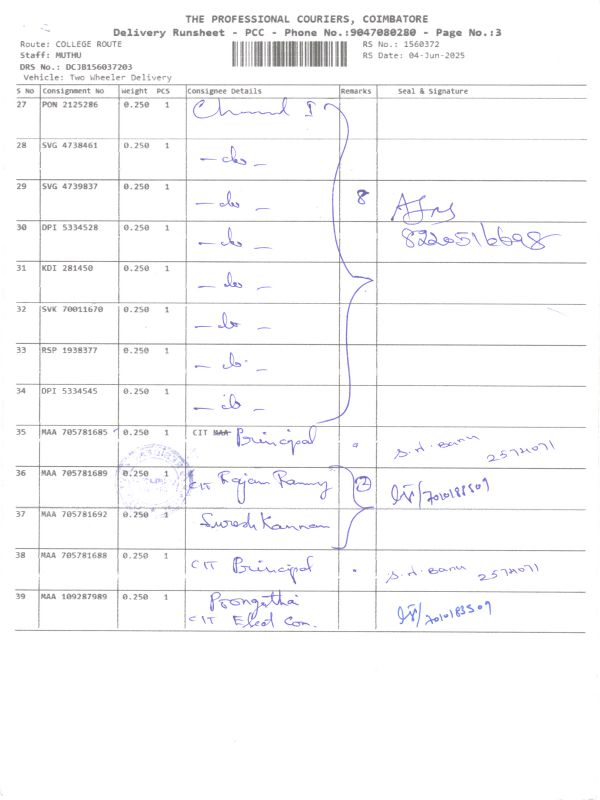 THE PROFESSIONAL COURIERS, COIMBATORE
Delivery Runsheet - PCC - Phone No.:9047080280 - Page No.:3
Route: COLLEGE ROUTE RS No.: 1560372
Staff: MUTHU RS Date: 04-Jun-2025
DRS No.: DCJB156037203
Vehicle: Two Wheeler Delivery
S No Consignment No Weight PCS Consignee Details Remarks Seal & Signature
27 PON 2125286 0.250 1
28 SVG 4738461 0.250 1 - do -
29 SVG 4739837 0.250 1 - do - 8
30 DPI 5334528 0.250 1 - do - 8220516698
31 KDI 281450 0.250 1 - do -
32 SVK 70011670 0.250 1 - do -
33 RSP 1938377 0.250 1 - do -
34 DPI 5334545 0.250 1 - do -
35 MAA 705781685 0.250 1 CIT MAA Principal S.H. Banu 2574071
36 MAA 705781689 0.250 1 CIT Rajan 2
37 MAA 705781692 0.250 1 Suresh Kannan
38 MAA 705781688 0.250 1 CIT Principal S.H. Banu 2574071
39 MAA 109287989 0.250 1 Poongothai
CIT Elect Com.